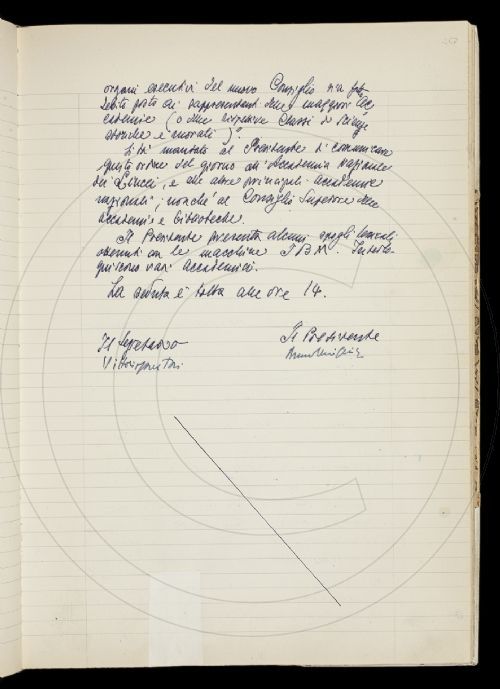 257
organi esecutivi del nuovo Consiglio sia fatto
debito posto ai rappresentanti delle maggiori Ac-
cademie (o delle rispettive Classi di scienze
storiche e morali)".
Si dà mandato al Presidente di comunicare
questo ordine del giorno all'Accademia Nazionale
dei Lincei, e alle altre principali accademie
nazionali, nonché al Consiglio Superiore delle
Accademie e biblioteche.
Il Presidente presenta alcuni spogli lessicali
ottenuti con le macchine IBM. Interlo-
quiscono vari Accademici.
La seduta è tolta alle ore 14.
Il Segretario
Il Presidente